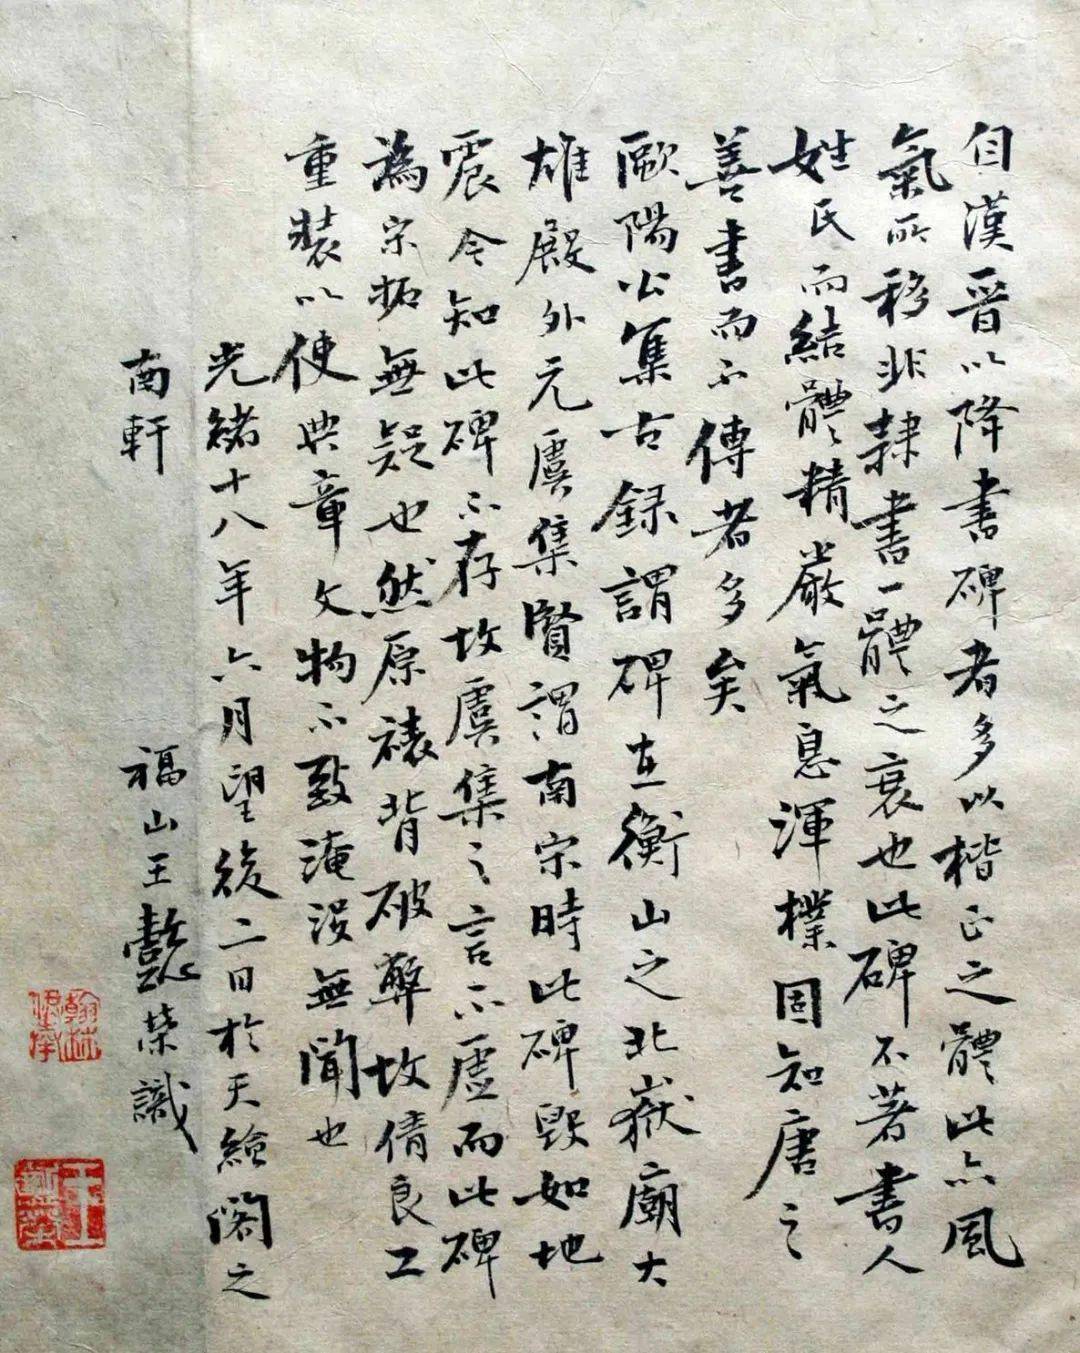 自漢晉以降書碑者多以楷正之體此亦風
氣所移非隸書一體之衰也此碑不著書人
姓氏而結體精嚴氣息渾樸固知唐之
善書而不傳者多矣
歐陽公集古録謂碑在衡山之北嶽廟大
雄殿外元虞集賢謂南宋時此碑毀如地
震今知此碑不存故虞集之言不虛而此碑
為宋拓無疑也然原裱背破弊故倩良工
重裝以使典章文物不致淹没無聞也
光緒十八年六月望後二日於天繪閣之
南軒
福山王懿榮識
翰林供奉
王懿榮